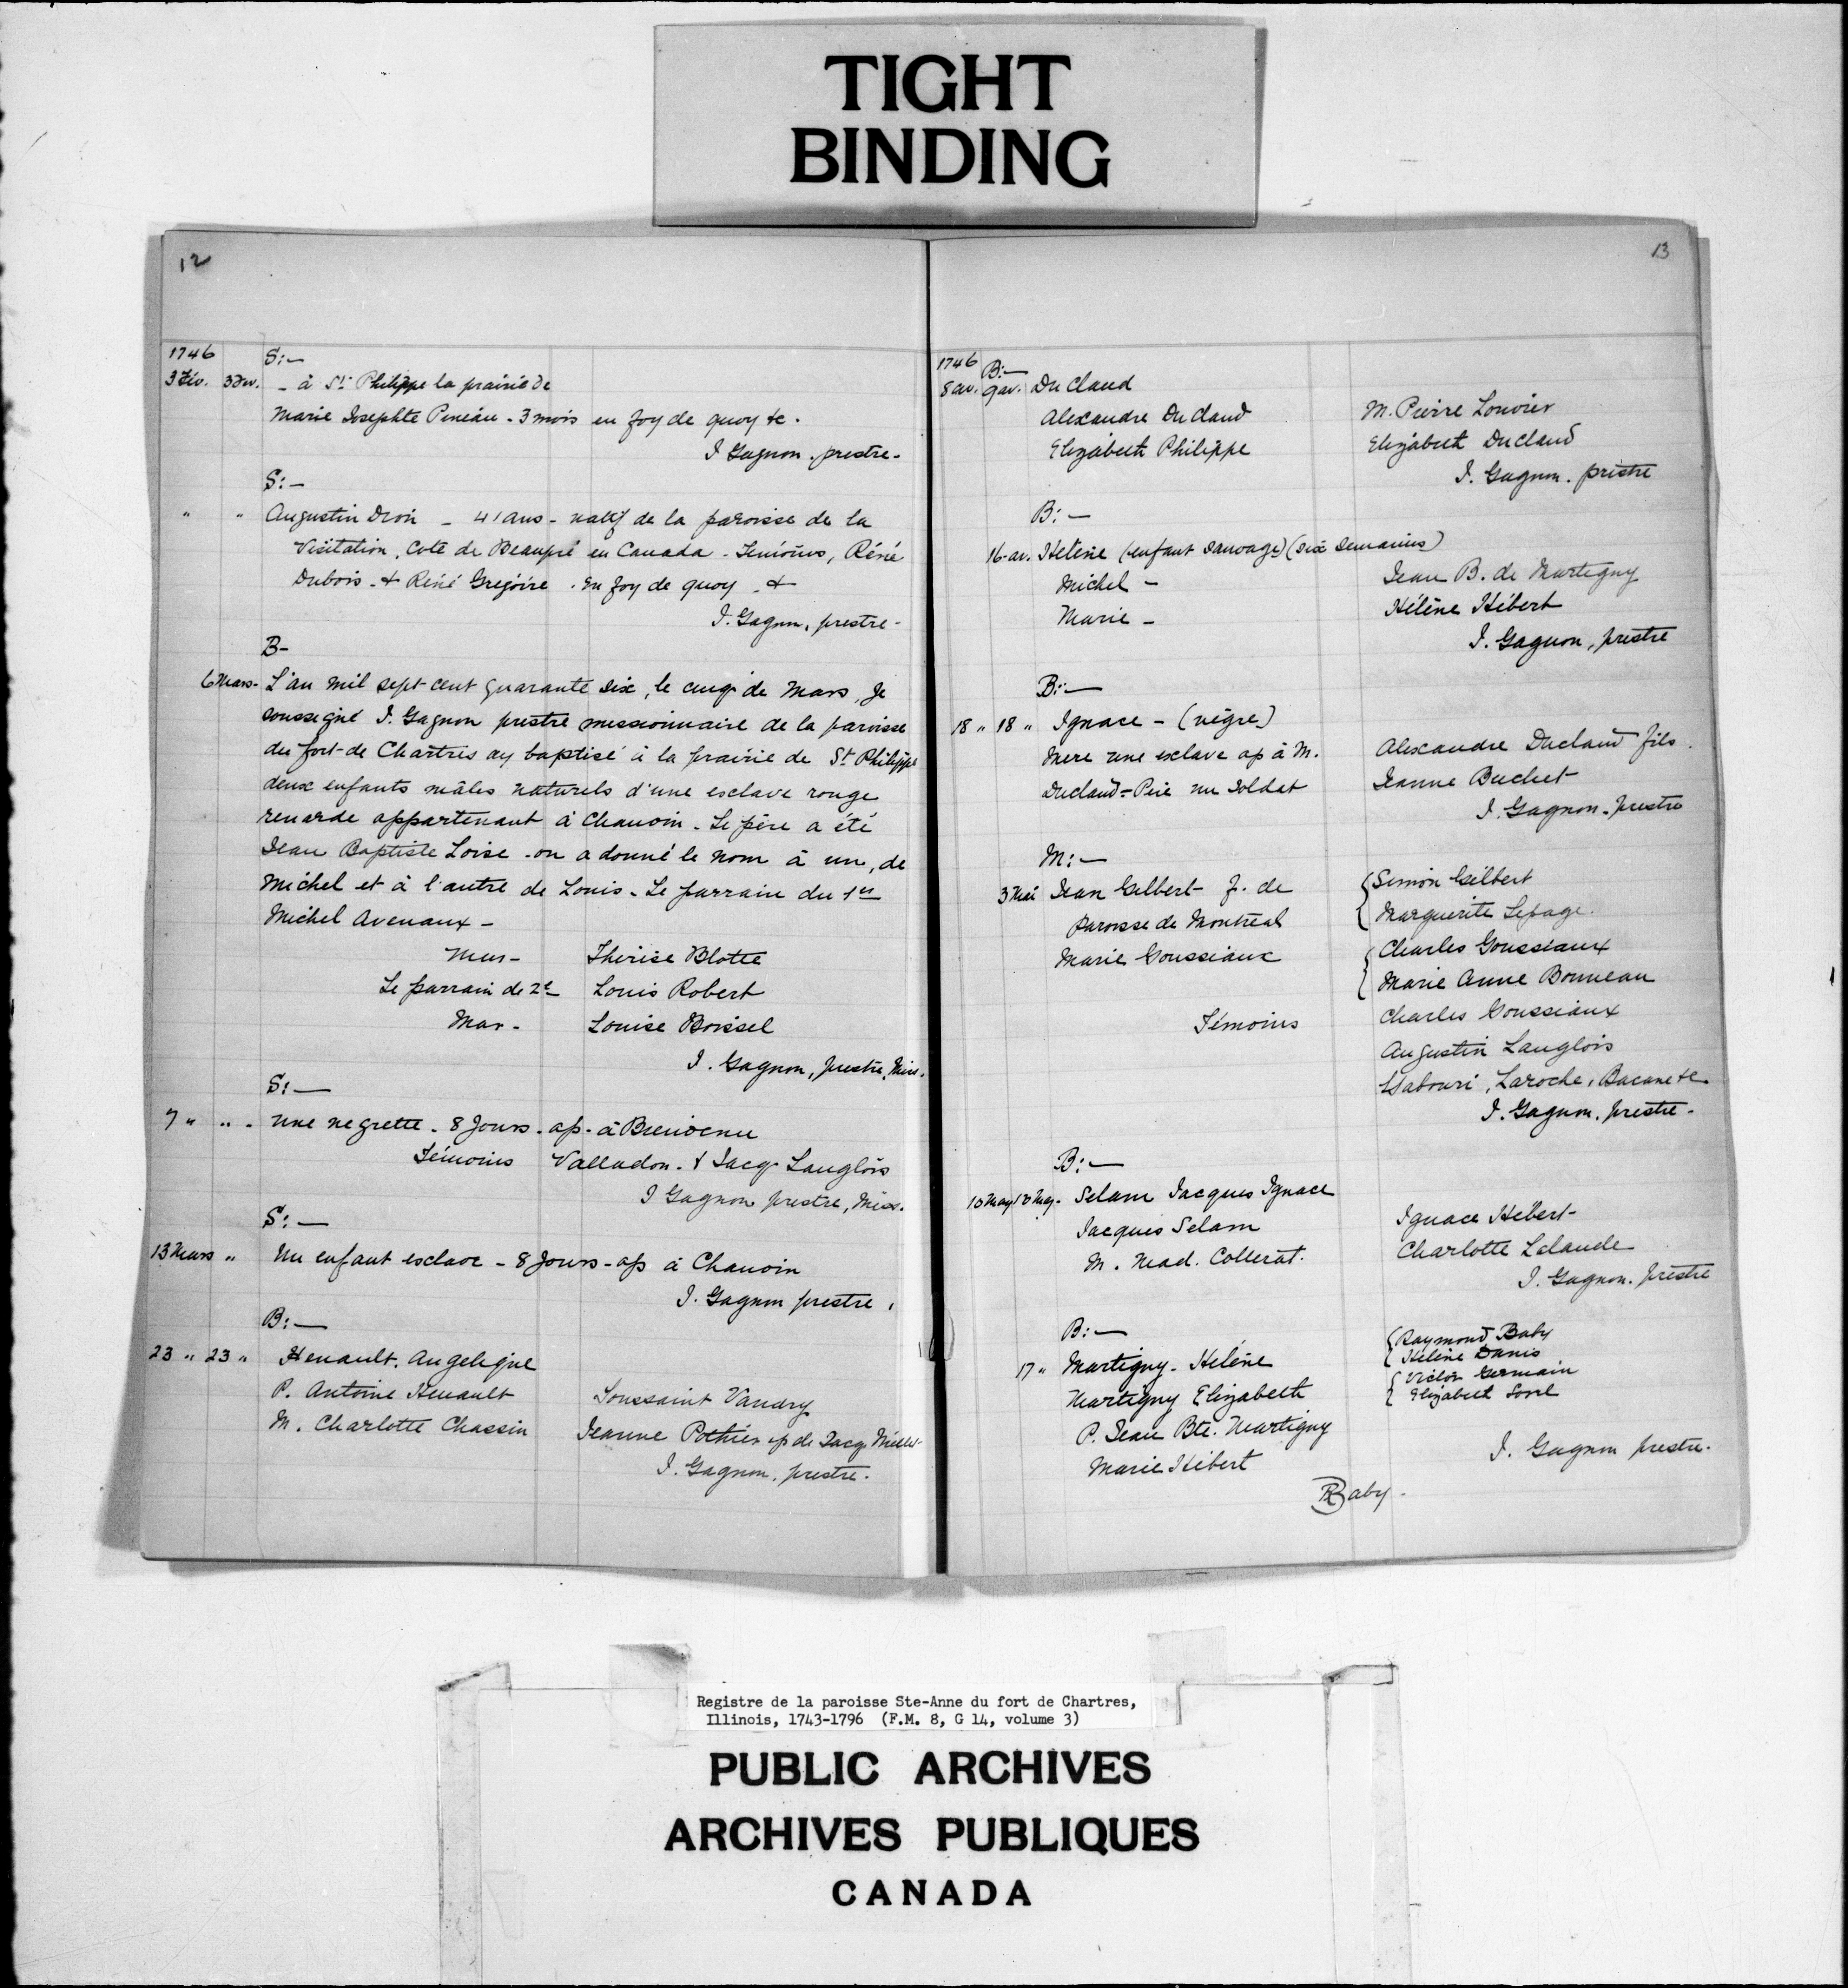 TIGHT
BINDING
12
1746
S:—
3 Fév. 3 Fev. - à St Philippe la prairie de
Marie Josephte Pineau - 3 mois en foy de quoy &c.
J Gagnon, prestre-
S:-
" " Augustin Dron - 41 ans - natif de la paroisse de la
Visitation, Cote de Beaupré en Canada - Témoins, Réné
Dubois - & Réné Gregoire. En foy de quoy - &
J. Gagnon, prestre-
B-
6 Mars- L'an mil sept cent quarante six, le cinq de Mars, Je
soussigné J. Gagnon prestre missionnaire de la paroisse
du fort de Chartres ay baptisé à la prairie de St Philippe
deux enfants mâles naturels d'une esclave rouge
renarde appartenant à Chauvin - Le père a été
Jean Baptiste Loise - on a donné le nom à un, de
Michel et à l'autre de Louis - Le parrain du 1er
Michel Avenaux -
Mar- Thérise Blotte
Le parrain de 2e Louis Robert
Mar- Louise Boissel
J. Gagnon, prestre, Miss.
S:—
7 " " - une negrette - 8 Jours - ap - à Bienvenu
Témoins Valladon - & Jacq Langlois
J Gagnon prestre, Miss.
S:—
13 Mars " Un enfant esclave - 8 Jours - ap à Chauvin
J. Gagnon prestre,
B:—
23 " 23 " Henault, Angelique
P. Antoine Henault Toussaint Vaudry
M. Charlotte Chassin Jeanne Pothier ep de Jacq Millet
J. Gagnon, prestre.
13
1746
B:—
8 av. 9 av. Du Claud
Alexandre Du Claud M. Pierre Louvier
Elizabeth Philippe Elizabeth Duclaud
J. Gagnon. prestre
B:—
16-av. Helène (enfant sauvage) (six semaines)
Michel - Jean B. de Martigny
Marie - Hélène Hébert
J. Gagnon, prestre
B:—
18 " 18 " Ignace - (nègre)
Mere une esclave ap à M. Alexandre Duclaud fils.
Duclaud = Père un soldat Jeanne Buchet
J. Gagnon - prestre
M:—
3 Mai Jean Gilbert f. de Simon Gilbert
Paroisse de Montreal Marguerite Lepage.
Marie Goussiaux Charles Goussiaux
Marie Anne Bonneau
Témoins Charles Goussiaux
Augustin Langlois
Labouri, Laroche, Bacane &c
J. Gagnon, prestre -
B:—
10 May 10 May - Selam Jacques Ignace
Jacques Selam Ignace Hébert-
M. Mad. Collerat. Charlotte Lalande
J. Gagnon. prestre
B:—
17 " Martigny - Hélène Raymond Baby
Hélène Danis
Martigny Elizabeth Victor Germain
Elizabeth Sorel
P. Jean Bte. Martigny
Marie Hébert J. Gagnon prestre.
R Baby.
Registre de la paroisse Ste-Anne du fort de Chartres,
Illinois, 1743-1796 (F.M. 8, G 14, volume 3)
PUBLIC ARCHIVES
ARCHIVES PUBLIQUES
CANADA